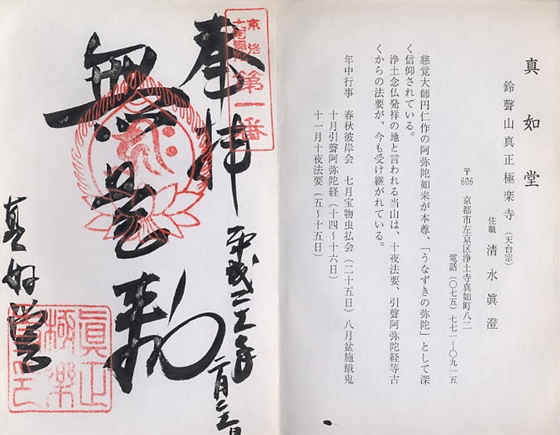 真如堂
鈴聲山真正極楽寺（天台宗）
住職 清水眞澄
〒606 京都市左京区浄土寺真如町八二
電話（〇七五）七七一―〇九一五
慈覚大師円仁作の阿弥陀如来が本尊、「うなずきの弥陀」として深
く信仰されている。
浄土念仏発祥の地と言われる当山は、十夜法要、引聲阿弥陀経等古
くからの法要が、今も受け継がれている。
年中行事 春秋彼岸会 七月宝物虫払会（二十五日）八月盆施餓鬼
十月引聲阿弥陀経（十四〜十六日）
十一月十夜法要（五〜十五日）
第一番
奉拝
平成二二年
無量寿
真如堂
眞正
極樂